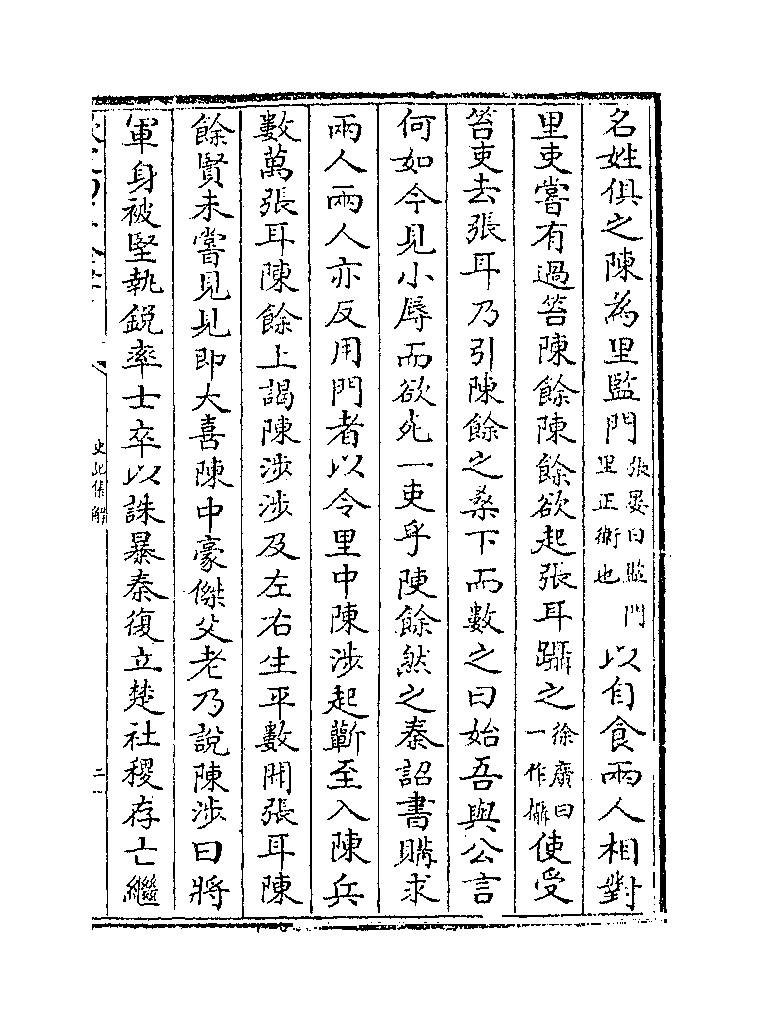 名姓俱之陳為里監門張晏曰監門里正衛也以自食兩人相對
里吏嘗有過笞陳餘陳餘欲起張耳躡之徐廣曰一作攝使受
笞吏去張耳乃引陳餘之桑下而數之曰始吾與公言
何如今見小辱而欲死一吏乎陳餘然之秦詔書購求
兩人兩人亦反用門者以令里中陳涉起蘄至入陳兵
數萬張耳陳餘上謁陳涉涉及左右生平數聞張耳陳
餘賢未嘗見見即大喜陳中豪傑父老乃說陳涉曰將
軍身被堅執銳率士卒以誅暴秦復立楚社稷存亡繼
史記集解
二